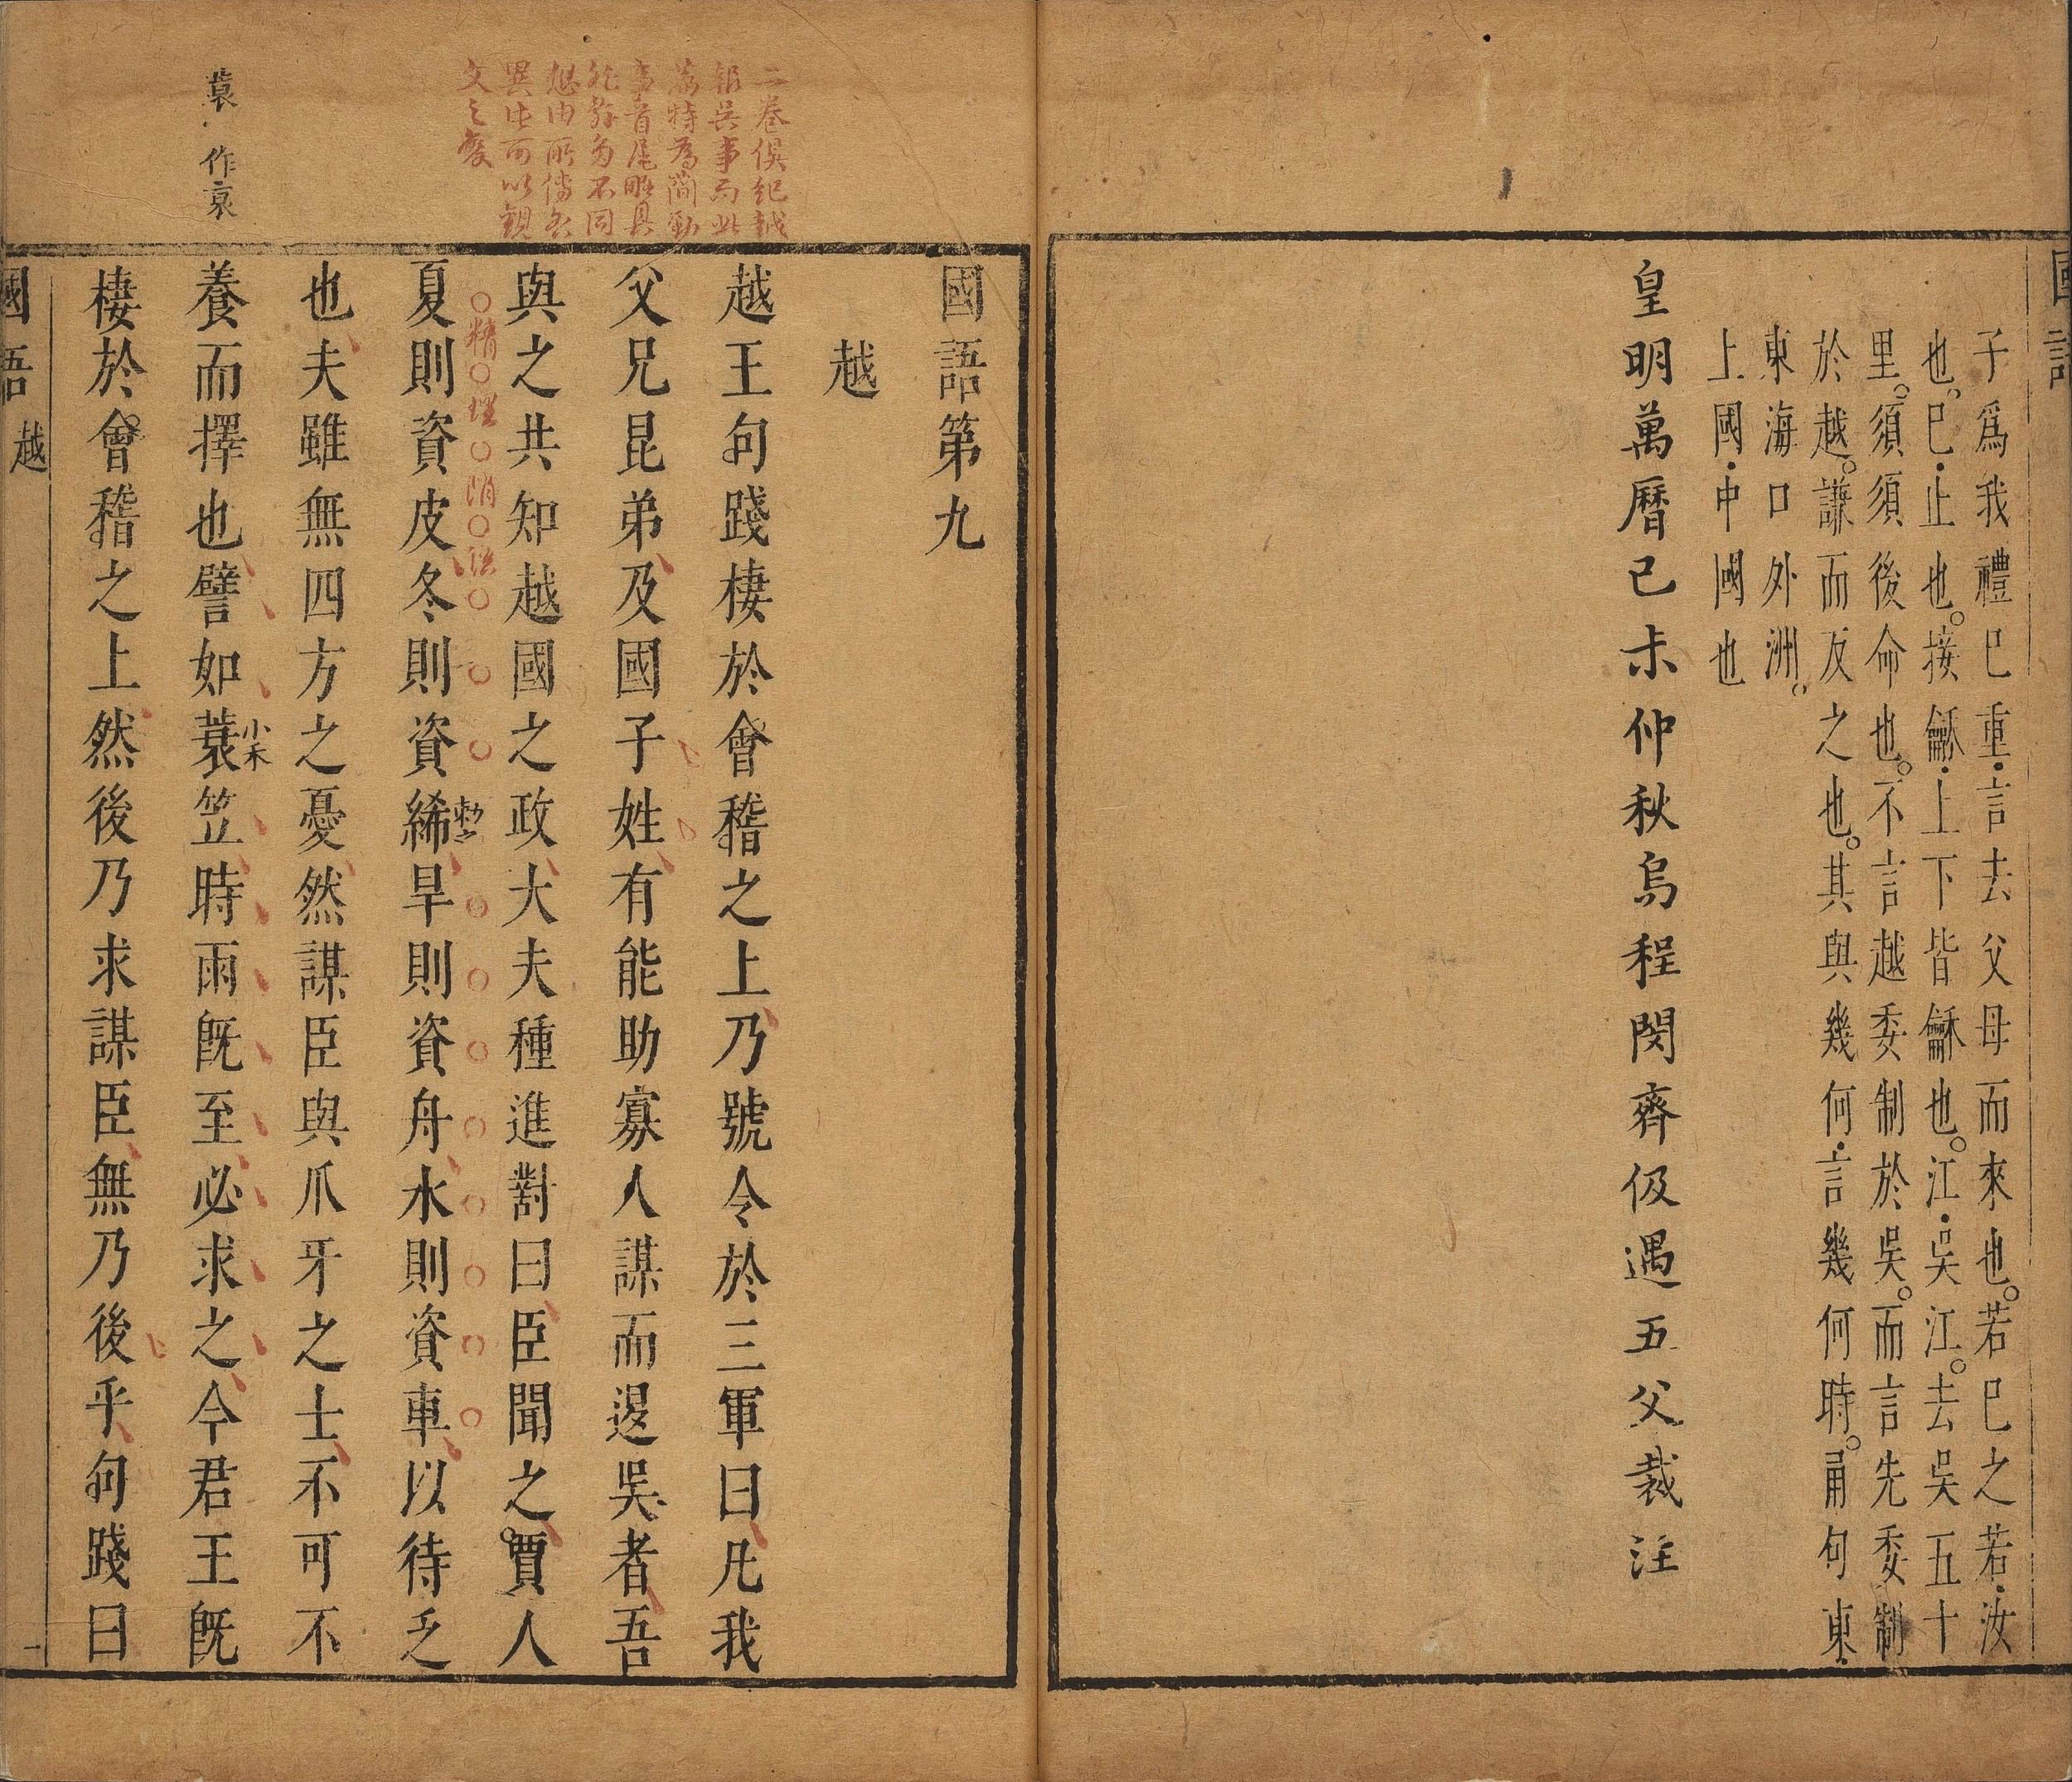 國語
子爲我禮已重言去父母而來也若已之若汝
也已止也接龢上下皆龢也江吳江去吳五十
里須須後命也不言越委制於吳而言先委制
於越謙而反之也其與幾何言幾何時甬句東
東海口外洲
上國中國也
皇明萬曆己未仲秋烏程閔齊伋遇五父裁注
國語第九
越
二卷俱紀越
報吳事而此
篇特爲簡勁
事首尾雖具
異此可以觀
文之變
越王句踐棲於會稽之上乃號令於三軍曰凡我
父兄昆弟及國子姓有能助寡人謀而退吳者吾
與之共知越國之政大夫種進對曰臣聞之賈人
精 語
夏則資皮冬則資絺旱則資舟水則資車以待乏
勅之
也夫雖無四方之憂然謀臣與爪牙之士不可不
蓑作衰
小禾
養而擇也譬如蓑笠時雨旣至必求之今君王旣
棲於會稽之上然後乃求謀臣無乃後乎句踐曰
國語 越 一